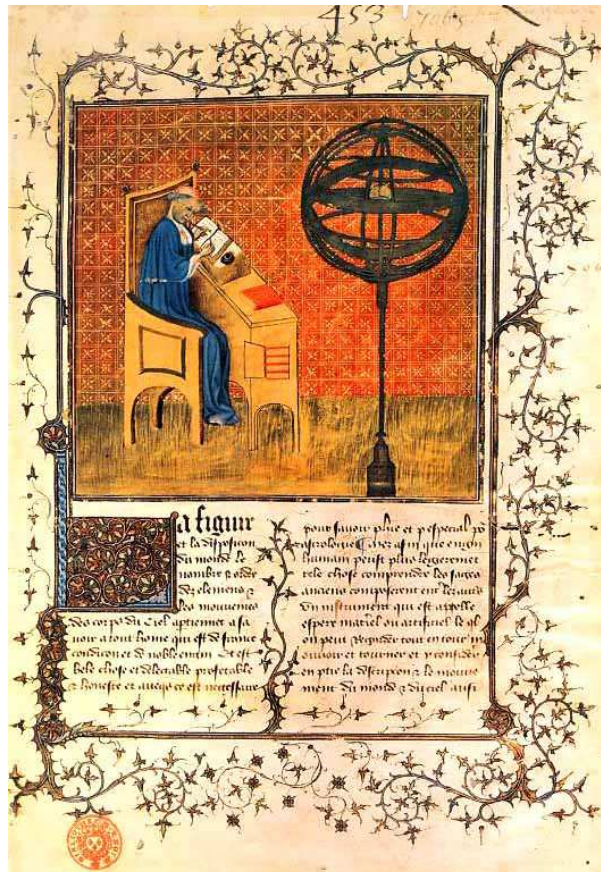 453
La figure
et la disposicion
du monde le
nombre & ordre
des elemens &
les mouvemens
des corps du ciel aptienent a sa
voir a tout home qui est de franche
condicion et de noble engin Et est
bele chose et delectable profetable
& honeste et avecques ce est necessaire
pour savoir plus et p especial
astrologie Et afin que engin
humain peust plus legierement
tele chose comprendre les sages
anciens composerent entre les autres
Un instrument qui est appelle
espere materiel ou artificiel le ql
on peut regarder tout entour
mouvoir et tourner et y considerer
en ptie la descripcion & le mouve
ment du monde & du ciel aussi